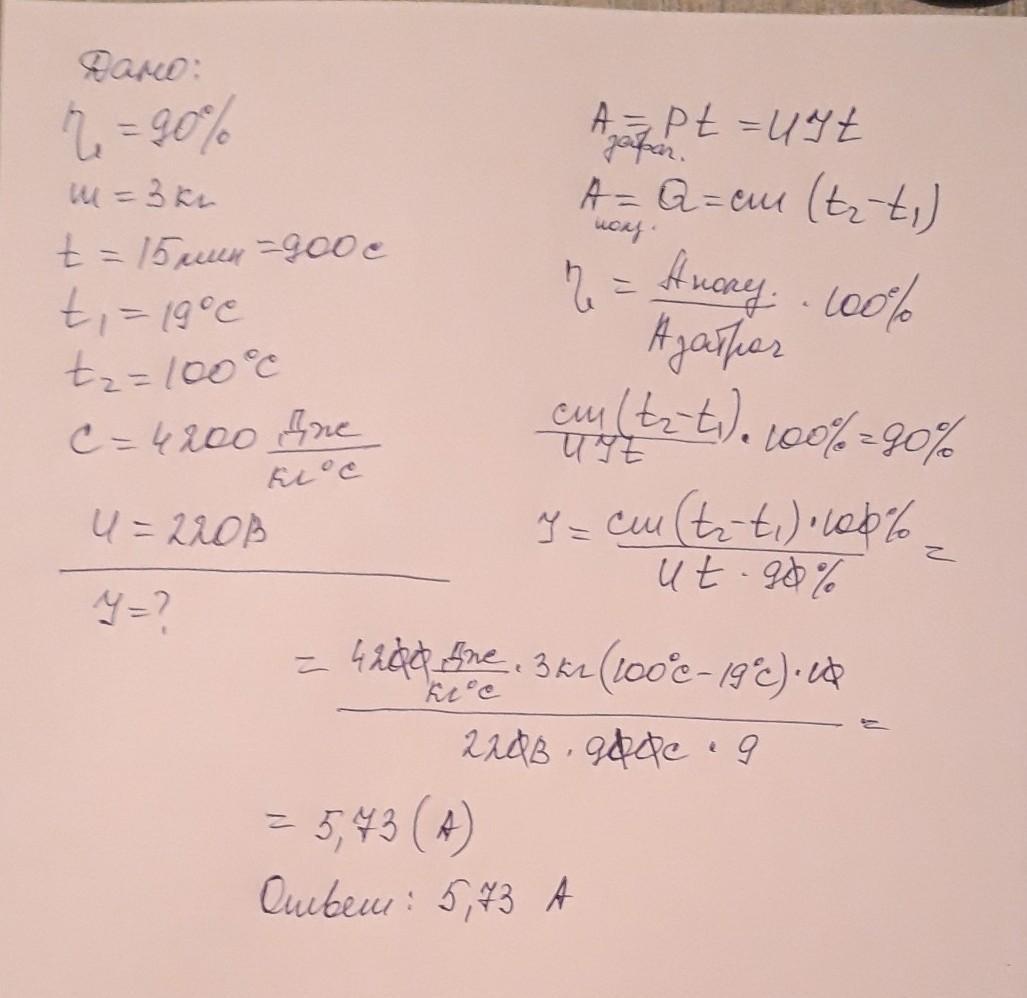 Дано:
η = 90%
m = 3 кг
t = 15 мин = 900 с
t₁ = 19°C
t₂ = 100°C
C = 4200 Дж/кг°C
U = 220В
J = ?
A затрач. = Pt = UJt
A полез. = Q = cm (t₂ - t₁)
η = A полез. / A затрач · 100%
cm(t₂ - t₁) / UJt · 100% = 90%
J = cm(t₂ - t₁) · 100% / Ut · 90% =
= 4200 Дж/кг°C · 3 кг (100°C - 19°C) · 10 / 220В · 900с · 9 =
= 5,73 (A)
Ответ: 5,73 A